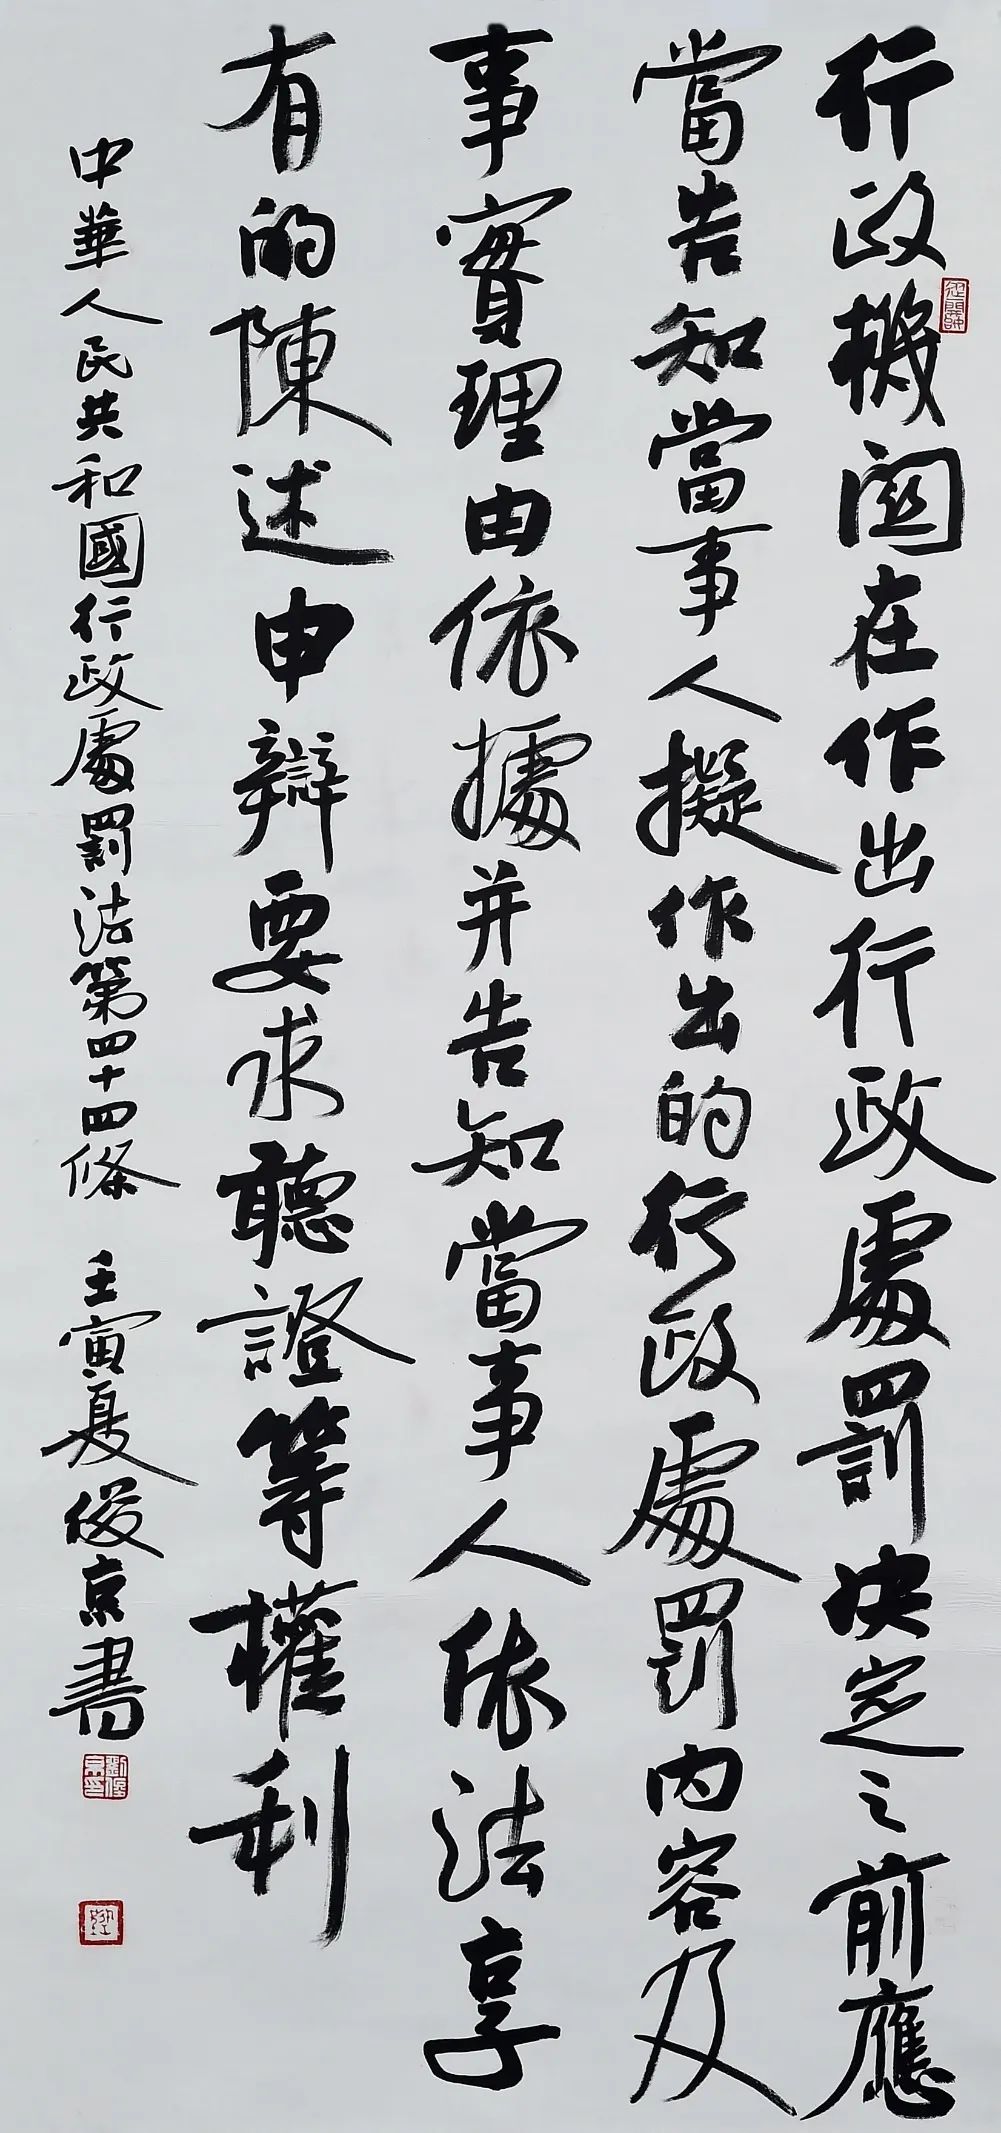 行政機関在作出行政處罰決定之前應
當告知當事人擬作出的行政處罰内容及
事實理由依據并告知當事人依法享
有的陳述申辯要求聽證等權利
中華人民共和國行政處罰法第四十四條 壬寅夏俊京書
劉俊京印